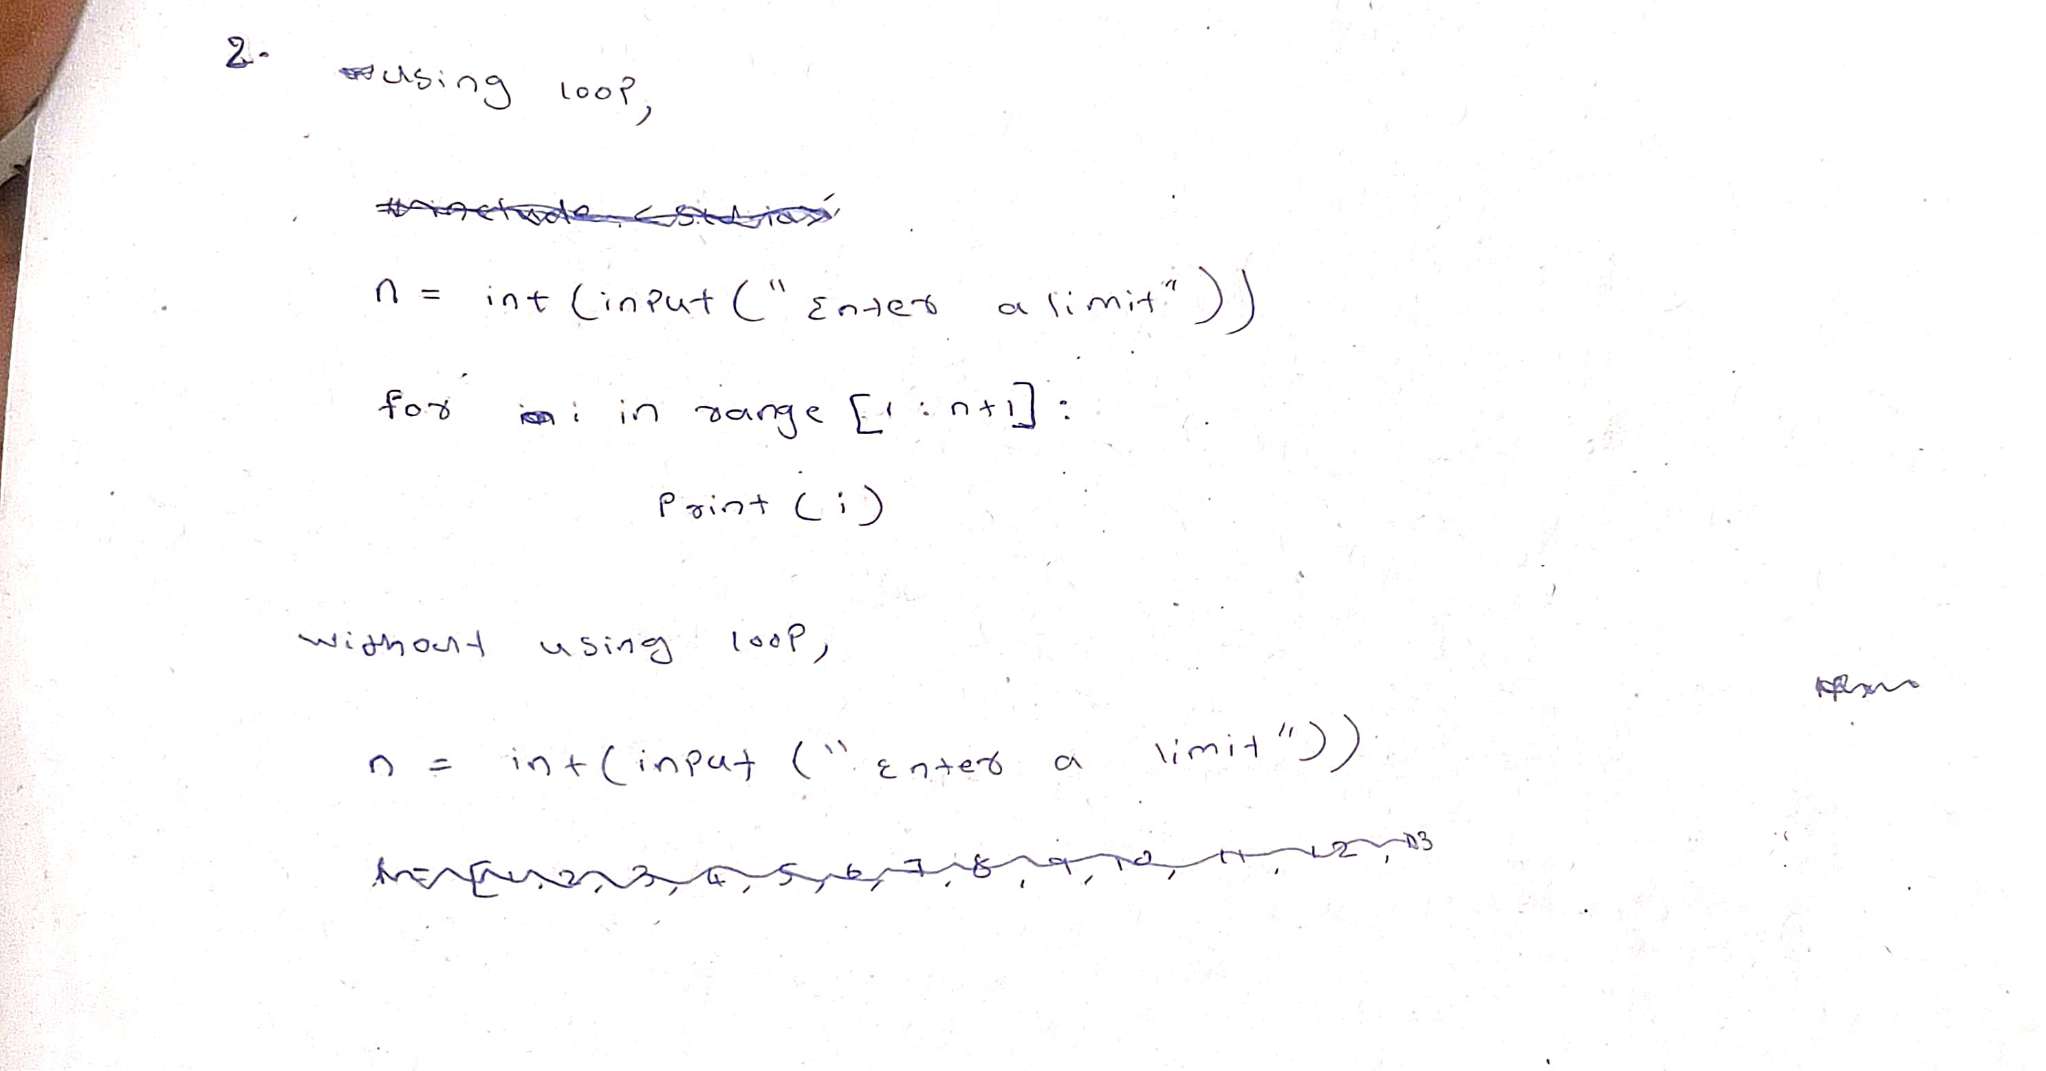 2. using loop,
n = int (input (" Enter a limit"))
for i in range [1 : n+1] :
Print (i)
without using loop,
n = int (input (" Enter a limit"))